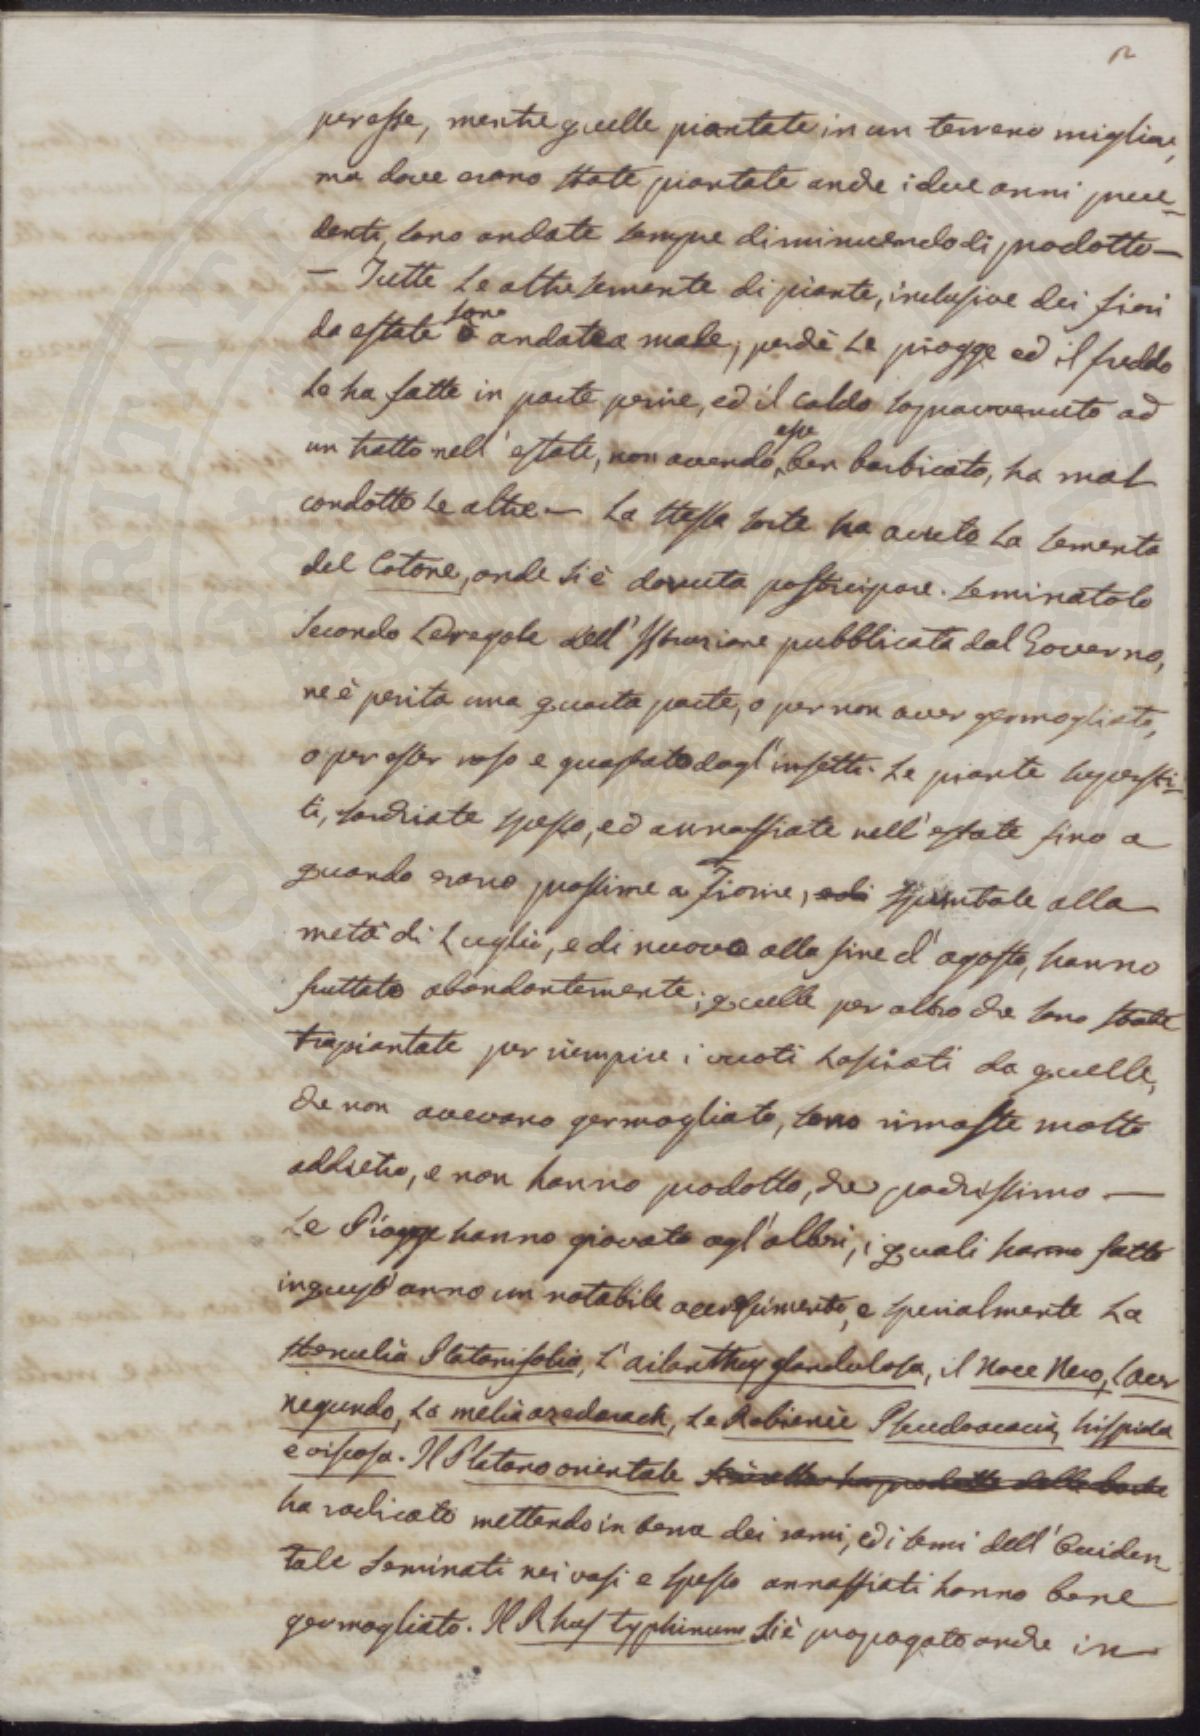 2
per esse, mentre quelle piantate in un terreno migliore,
ma dove erano state piantate anche i due anni prece-
denti, sono andate sempre diminuendo di prodotto —
— Tutte le altre semente di piante, inclusive dei fiori
da estate sono andate a male, perchè le piogge ed il freddo
le ha fatte in parte perire, ed il caldo sopravvenuto ad
un tratto nell' estate, non avendo esse ben barbicato, ha mal
condotto le altre — La stessa sorte ha avuto la sementa
del Cotone, onde si è dovuta posticipare. Seminatolo
secondo le regole dell' Istruzione pubblicata dal Governo,
ne è perita una quarta parte, o per non aver germogliato,
o per esser roso e guastato dagl' insetti. Le piante supersti-
ti, sarchiate spesso, ed annaffiate nell' estate fino a
quando erano prossime a fiorire, edi spuntate alla
metà di Luglio, e di nuovo alla fine d' agosto, hanno
fruttato abondantemente; quelle per altro che sono state
trapiantate per riempire i vuoti lasciati da quelle,
che non avevano germogliato, sono rimaste molto
addietro, e non hanno prodotto, che pochissimo —
Le Piogge hanno giovato agl' alberi, i quali hanno fatto
in quest' anno un notabile accrescimento, e specialmente la
Sterculia Platanifolia, l' ailanthus glandulosa, il Noce Nero, l'acer
negundo, la melia azedarach, le Robienie Pseudoacacia, hispida
e viscosa. Il Platano orientale
ha radicato mettendo in terra dei rami, ed i semi dell' Occiden-
tale seminati nei vasi e spesso annaffiati hanno bene
germogliato. Il Rhus typhinum si è propagato anche in